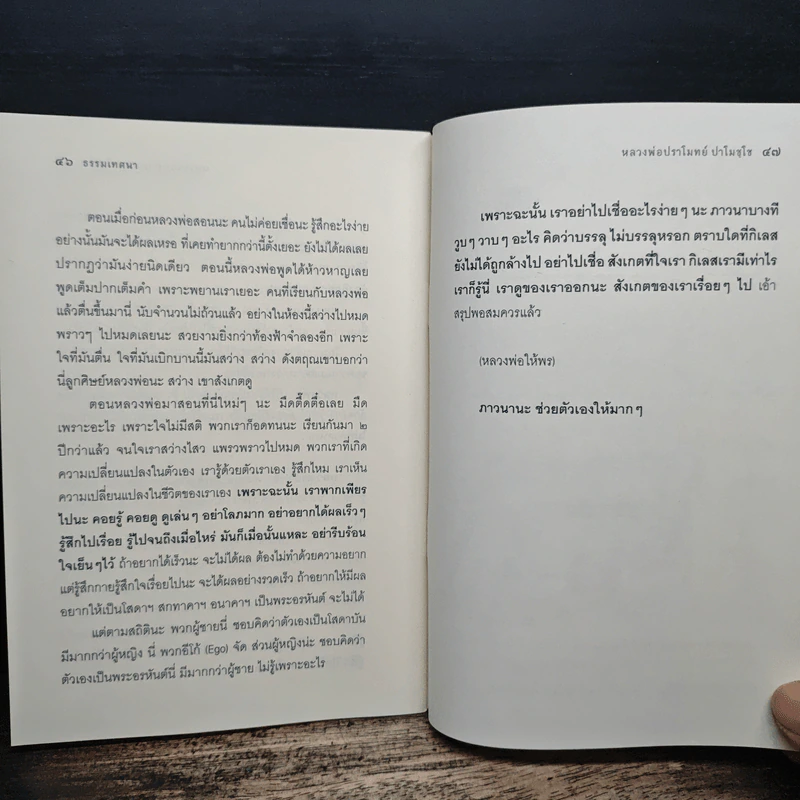 ๔๖ ธรรมเทศนา
ตอนเมื่อก่อนหลวงพ่อสอนนะ คนไม่ค่อยเชื่อนะ รู้สึกอะไรง่าย
อย่างนั้นมันจะได้ผลเหรอ ที่เคยทำยากกว่านี้ตั้งเยอะ ยังไม่ได้ผลเลย
ปรากฏว่ามันง่ายนิดเดียว ตอนนี้หลวงพ่อพูดได้ห้าวหาญเลย
พูดเต็มปากเต็มคำ เพราะพยานเราเยอะ คนที่เรียนกับหลวงพ่อ
แล้วตื่นขึ้นมานี่ นับจำนวนไม่ถ้วนแล้ว อย่างในห้องนี้สว่างไปหมด
พราวๆ ไปหมดเลยนะ สวยงามยิ่งกว่าท้องฟ้าจำลองอีก เพราะ
ใจที่มันตื่น ใจที่มันเบิกบานนี้มันสว่าง สว่าง ดังตฤณเขาบอกว่า
นี่ลูกศิษย์หลวงพ่อนะ สว่าง เขาสังเกตดู
ตอนหลวงพ่อมาสอนที่นี่ใหม่ๆ นะ มืดตึ๊ดตื๋อเลย มืด
เพราะอะไร เพราะใจไม่มีสติ พวกเราก็อดทนนะ เรียนกันมา ๒
ปีกว่าแล้ว จนใจเราสว่างไสว แพรวพราวไปหมด พวกเราที่เกิด
ความเปลี่ยนแปลงในตัวเอง เรารู้ด้วยตัวเราเอง รู้สึกไหม เราเห็น
ความเปลี่ยนแปลงในชีวิตของเราเอง เพราะฉะนั้น เราพากเพียร
ไปนะ คอยรู้ คอยดู ดูเล่นๆ อย่าโลภมาก อย่าอยากได้ผลเร็วๆ
รู้สึกไปเรื่อย รู้ไปจนถึงเมื่อไหร่ มันก็เมื่อนั้นแหละ อย่ารีบร้อน
ใจเย็นๆไว้ ถ้าอยากได้เร็วนะ จะไม่ได้ผล ต้องไม่ทำด้วยความอยาก
แต่รู้สึกกายรู้สึกใจเรื่อยไปนะ จะได้ผลอย่างรวดเร็ว ถ้าอยากให้มีผล
อยากให้เป็นโสดาฯ สกทาคาฯ อนาคาฯ เป็นพระอรหันต์ จะไม่ได้
แต่ตามสถิตินะ พวกผู้ชายนี่ ชอบคิดว่าตัวเองเป็นโสดาบัน
มีมากกว่าผู้หญิง นี่ พวกอีโก้ (Ego) จัด ส่วนผู้หญิงน่ะ ชอบคิดว่า
ตัวเองเป็นพระอรหันต์นี่ มีมากกว่าผู้ชาย ไม่รู้เพราะอะไร
หลวงพ่อปราโมทย์ ปาโมชฺโช ๔๗
เพราะฉะนั้น เราอย่าไปเชื่ออะไรง่ายๆ นะ ภาวนาบางที
วูบๆ วาบๆ อะไร คิดว่าบรรลุ ไม่บรรลุหรอก ตราบใดที่กิเลส
ยังไม่ได้ถูกล้างไป อย่าไปเชื่อ สังเกตที่ใจเรา กิเลสเรามีเท่าไร
เราก็รู้นี่ เราดูของเราออกนะ สังเกตของเราเรื่อยๆ ไป เอ้า
สรุปพอสมควรแล้ว
(หลวงพ่อให้พร)
ภาวนานะ ช่วยตัวเองให้มากๆ